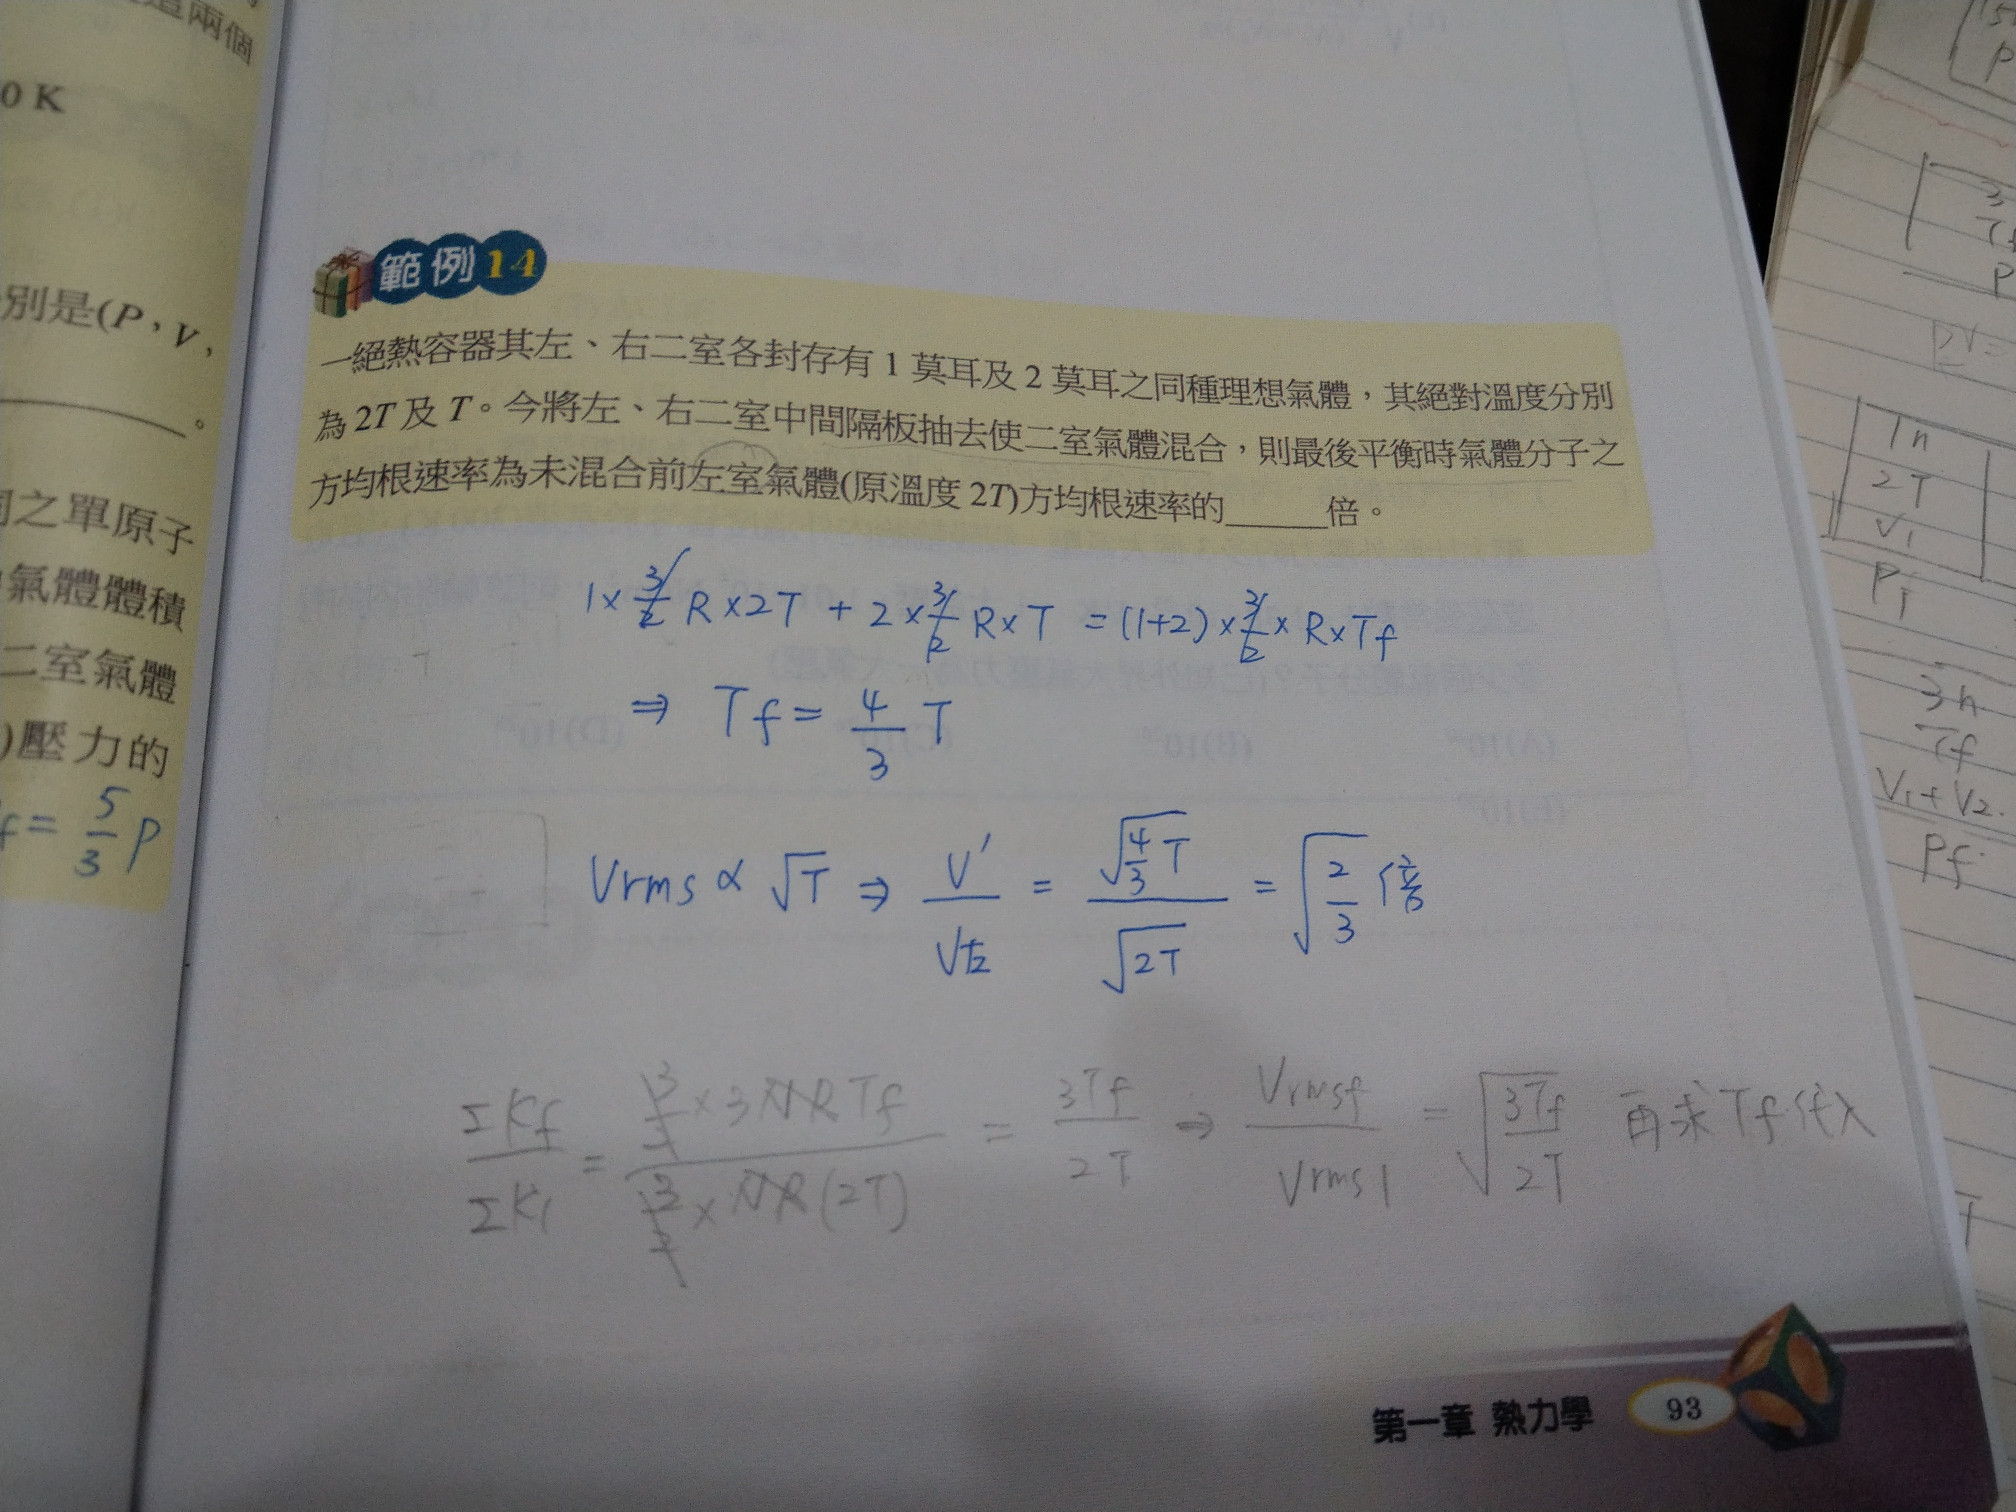 這兩個
0 K
別是(P，V，
。
之單原子
氣體體積
二室氣體
)壓力的
f = 5/3 P
範例 14
一絕熱容器其左、右二室各封存有 1 莫耳及 2 莫耳之同種理想氣體，其絕對溫度分別
為 2T 及 T。今將左、右二室中間隔板抽去使二室氣體混合，則最後平衡時氣體分子之
方均根速率為未混合前左室氣體(原溫度 2T)方均根速率的______倍。
1 × 3/2 R × 2T + 2 × 3/2 R × T = (1+2) × 3/2 × R × Tf
⇒ Tf = 4/3 T
Vrms ∝ √T ⇒ V'/V左 = √(4/3 T)/√(2T) = √(2/3) 倍
ΣKf/ΣK1 = (3/2 × 3NRTf)/(3/2 × NR(2T)) = 3Tf/2T ⇒ Vrmsf/Vrms1 = √(3Tf/2T) 再求Tf代入
第一章 熱力學 93
PV=
1n
2T
V1
P1
3n
Tf
V1+V2
Pf